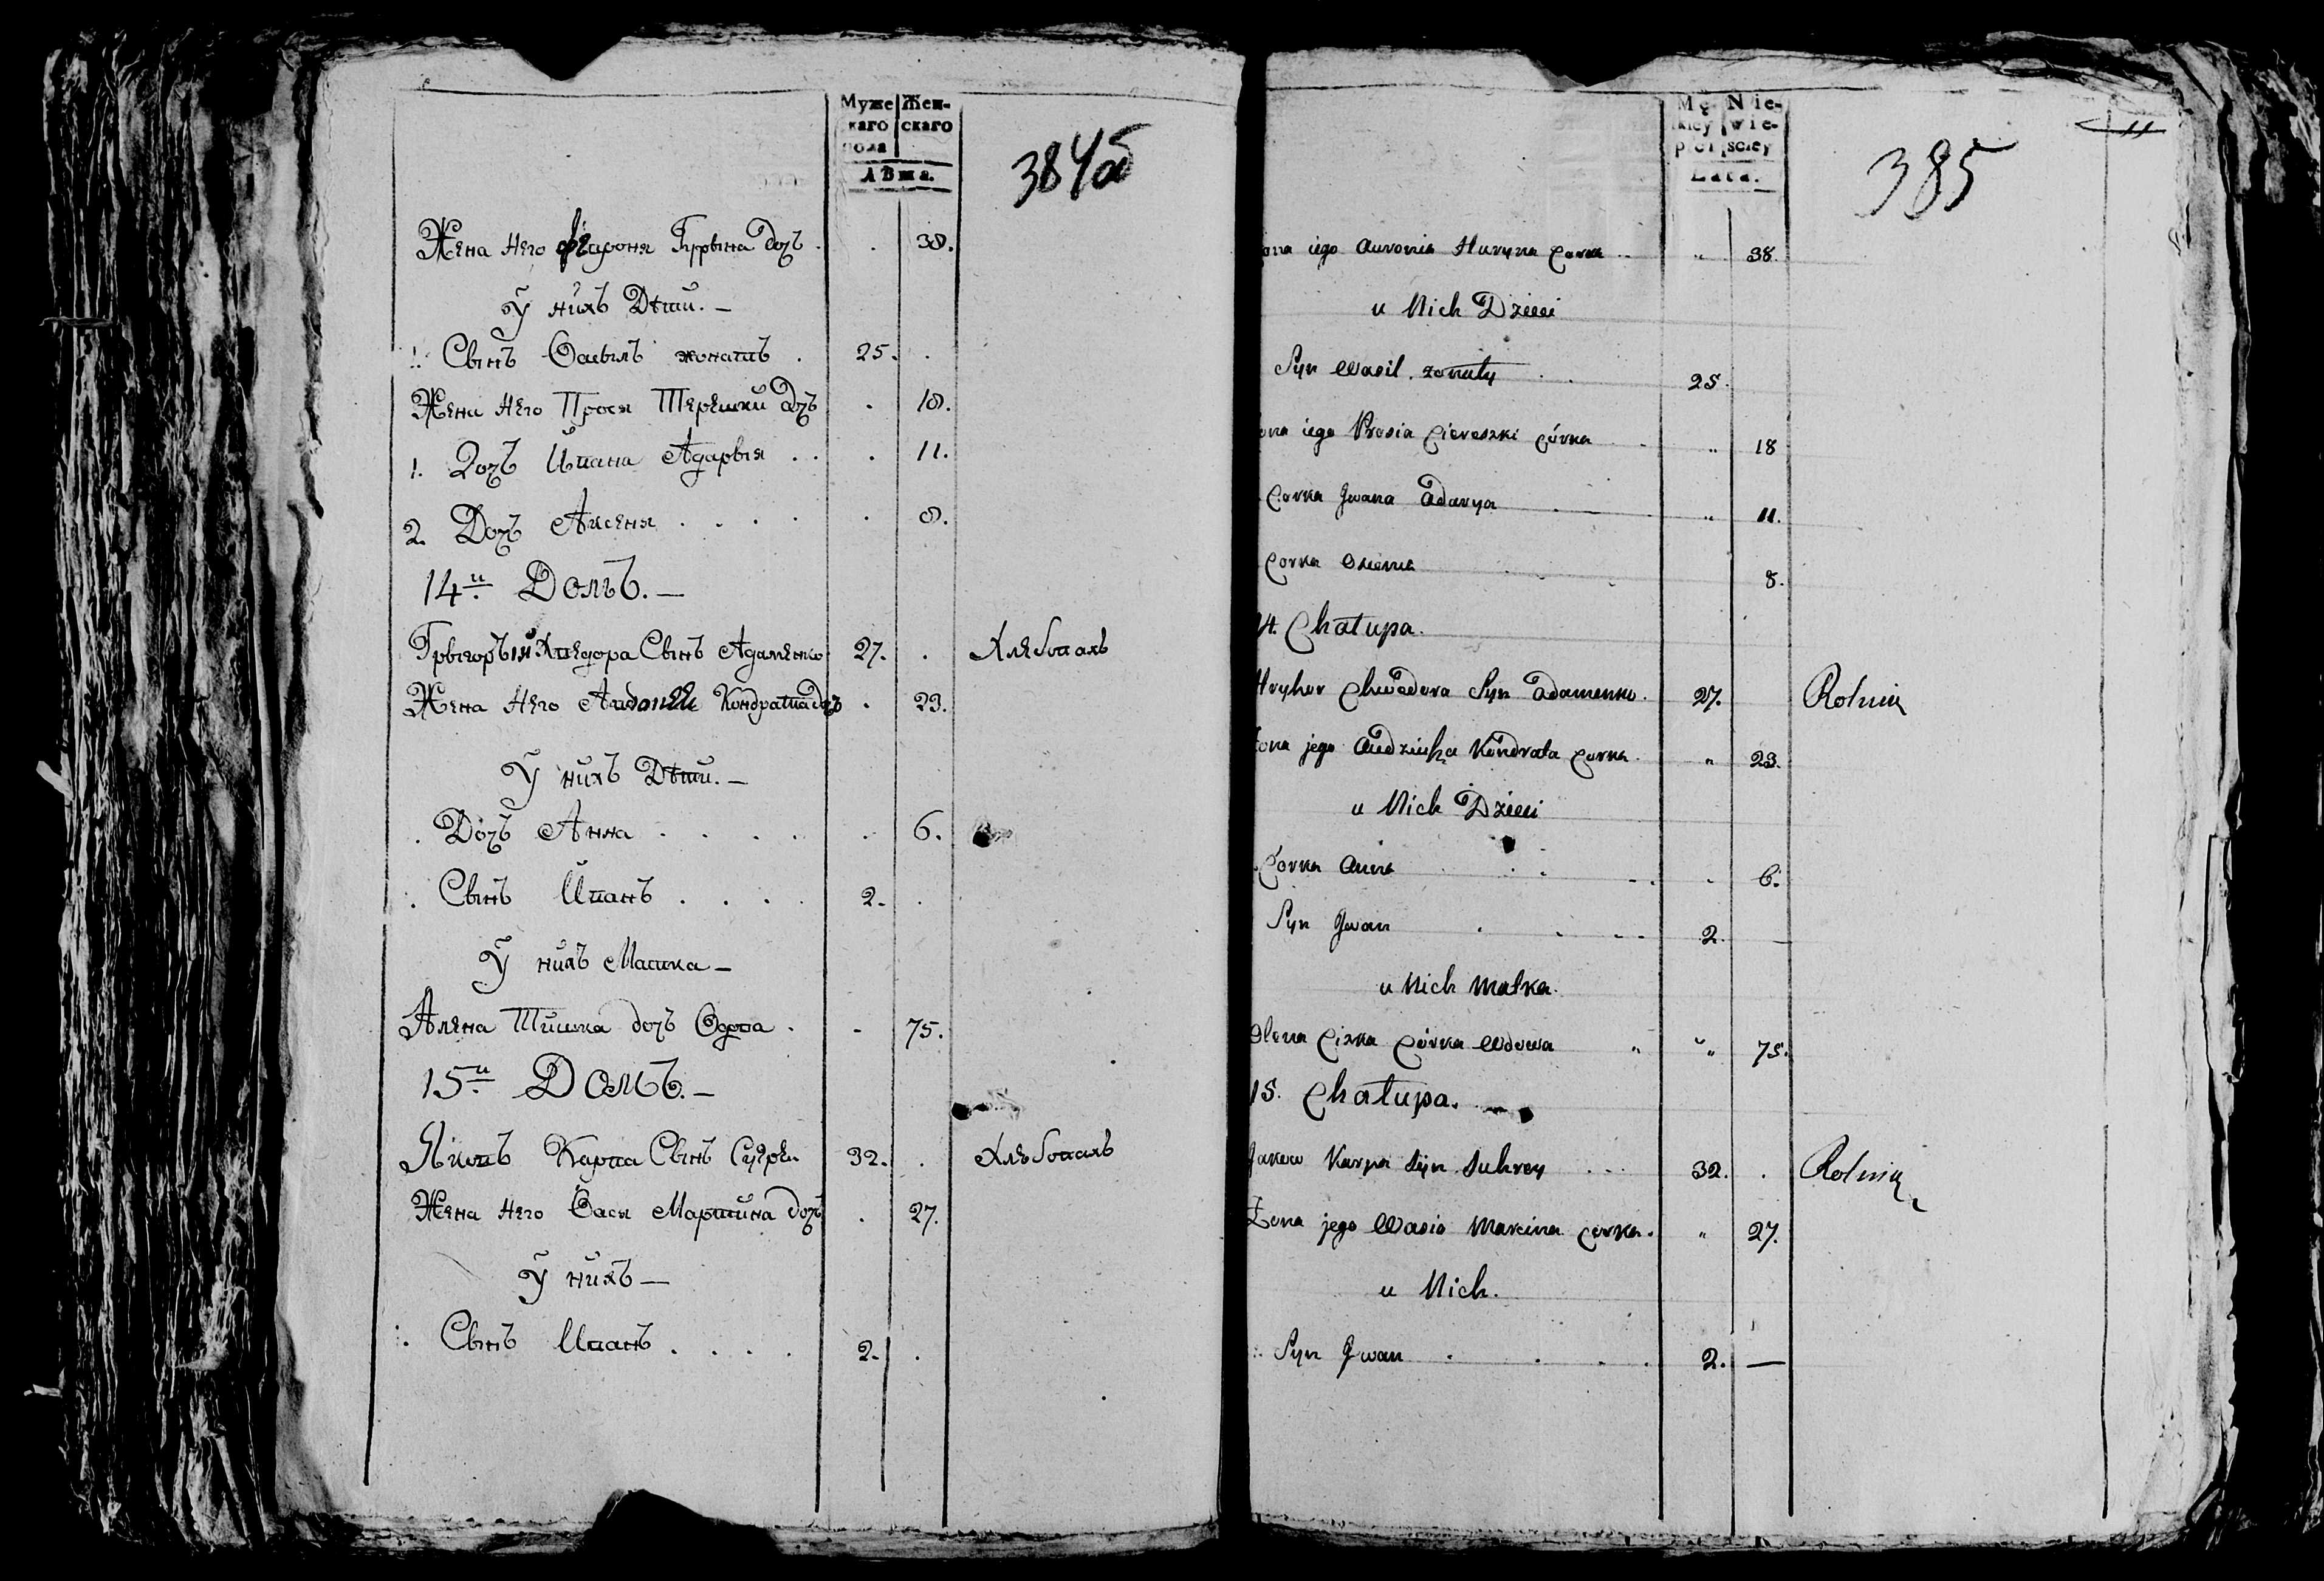 Муже Жен-
каго скаго
пола
Лѣта.
384об
Жена Него Гурына дочъ . . 38.
У нихъ Дѣти. —
1. Сынъ Василъ жонатъ . 25. .
Жена Него Прося Терешки дочъ . 18.
1. Дочъ Ивана Адарыя . . . 11.
2. Дочъ Аксеня . . . . . 8.
14й Домъ. —
Хведора Сынъ Адаменко 27. . Хлебопахъ
Жена Него Кондрата дочъ . 23.
У нихъ Дѣти. —
. Дочъ Анна . . . . . 6.
. Сынъ Иванъ . . . . 2. .
У нихъ Матка —
Алена Тишка дочъ Вдова . - 75.
15й Домъ. —
Карпа Сынъ 32. . Хлѣбопахъ
Жена Него Вася Мартина дочъ . 27.
У нихъ —
Сынъ Иванъ . . . . 2. .
Mę- Nie-
skiey wie-
płci sciey
Lata.
385
11
ona iego Auronia Huryna Corka .. „ 38.
u Nich Dzieci
Syn Wasil . zonaty . . 25.
ona iego Prosia Ciereszki Córka . „ 18
Corka Jwana Adarya . „ 11.
Corka Oxienia . . . 8.
14. Chałupa.
Hryhor Chwedora Syn Adamenko . 27. Rolnik
Żona jego Kondrata Corka . „ 23.
u Nich Dzieci
Corka Anna . . . . - 6.
Syn Jwan . . . . 2. —
u Nich Matka.
Olena Ciszka Córka Wdowa „ „ 75.
15. Chałupa. —
Jakow Karpa Syn Suhrey . . . 32. . Rolnik
Żona jego Wasia Marcina Corka . „ 27.
u Nich.
Syn Jwan . . . . 2. —